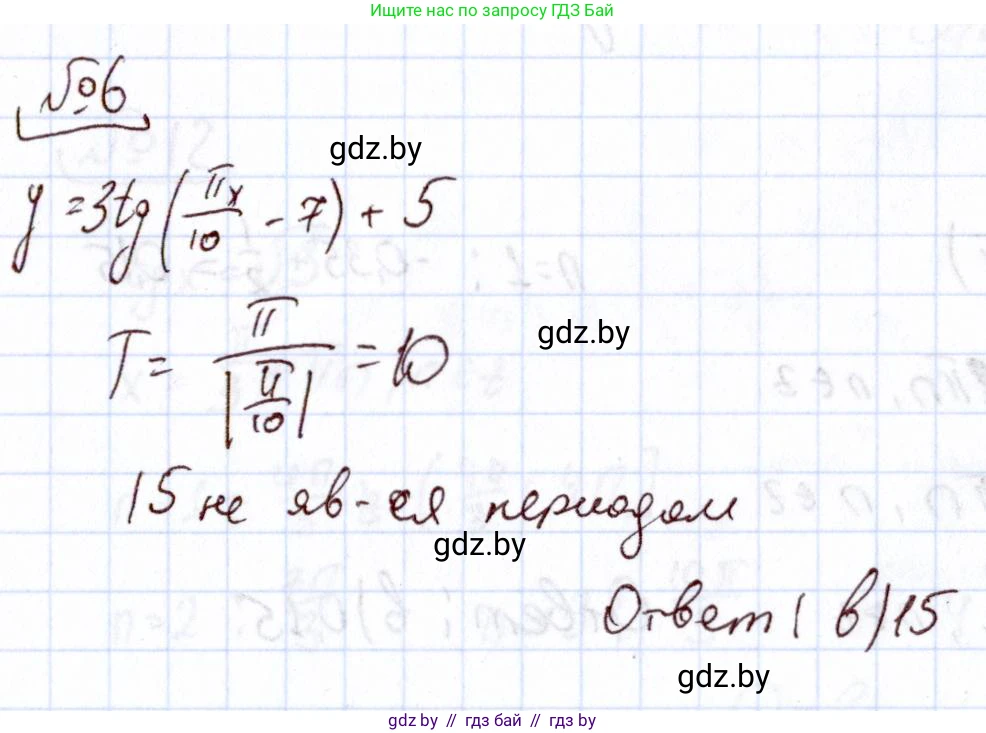 Ищите нас по запросу ГДЗ Бай
№6
gdz.by
y = 3tg(πx/10 - 7) + 5
gdz.by
T = π/|π/10| = 10
15 не яв-ся периодом
gdz.by
Ответ: в) 15
gdz.by
gdz.by // гдз бай // гдз by